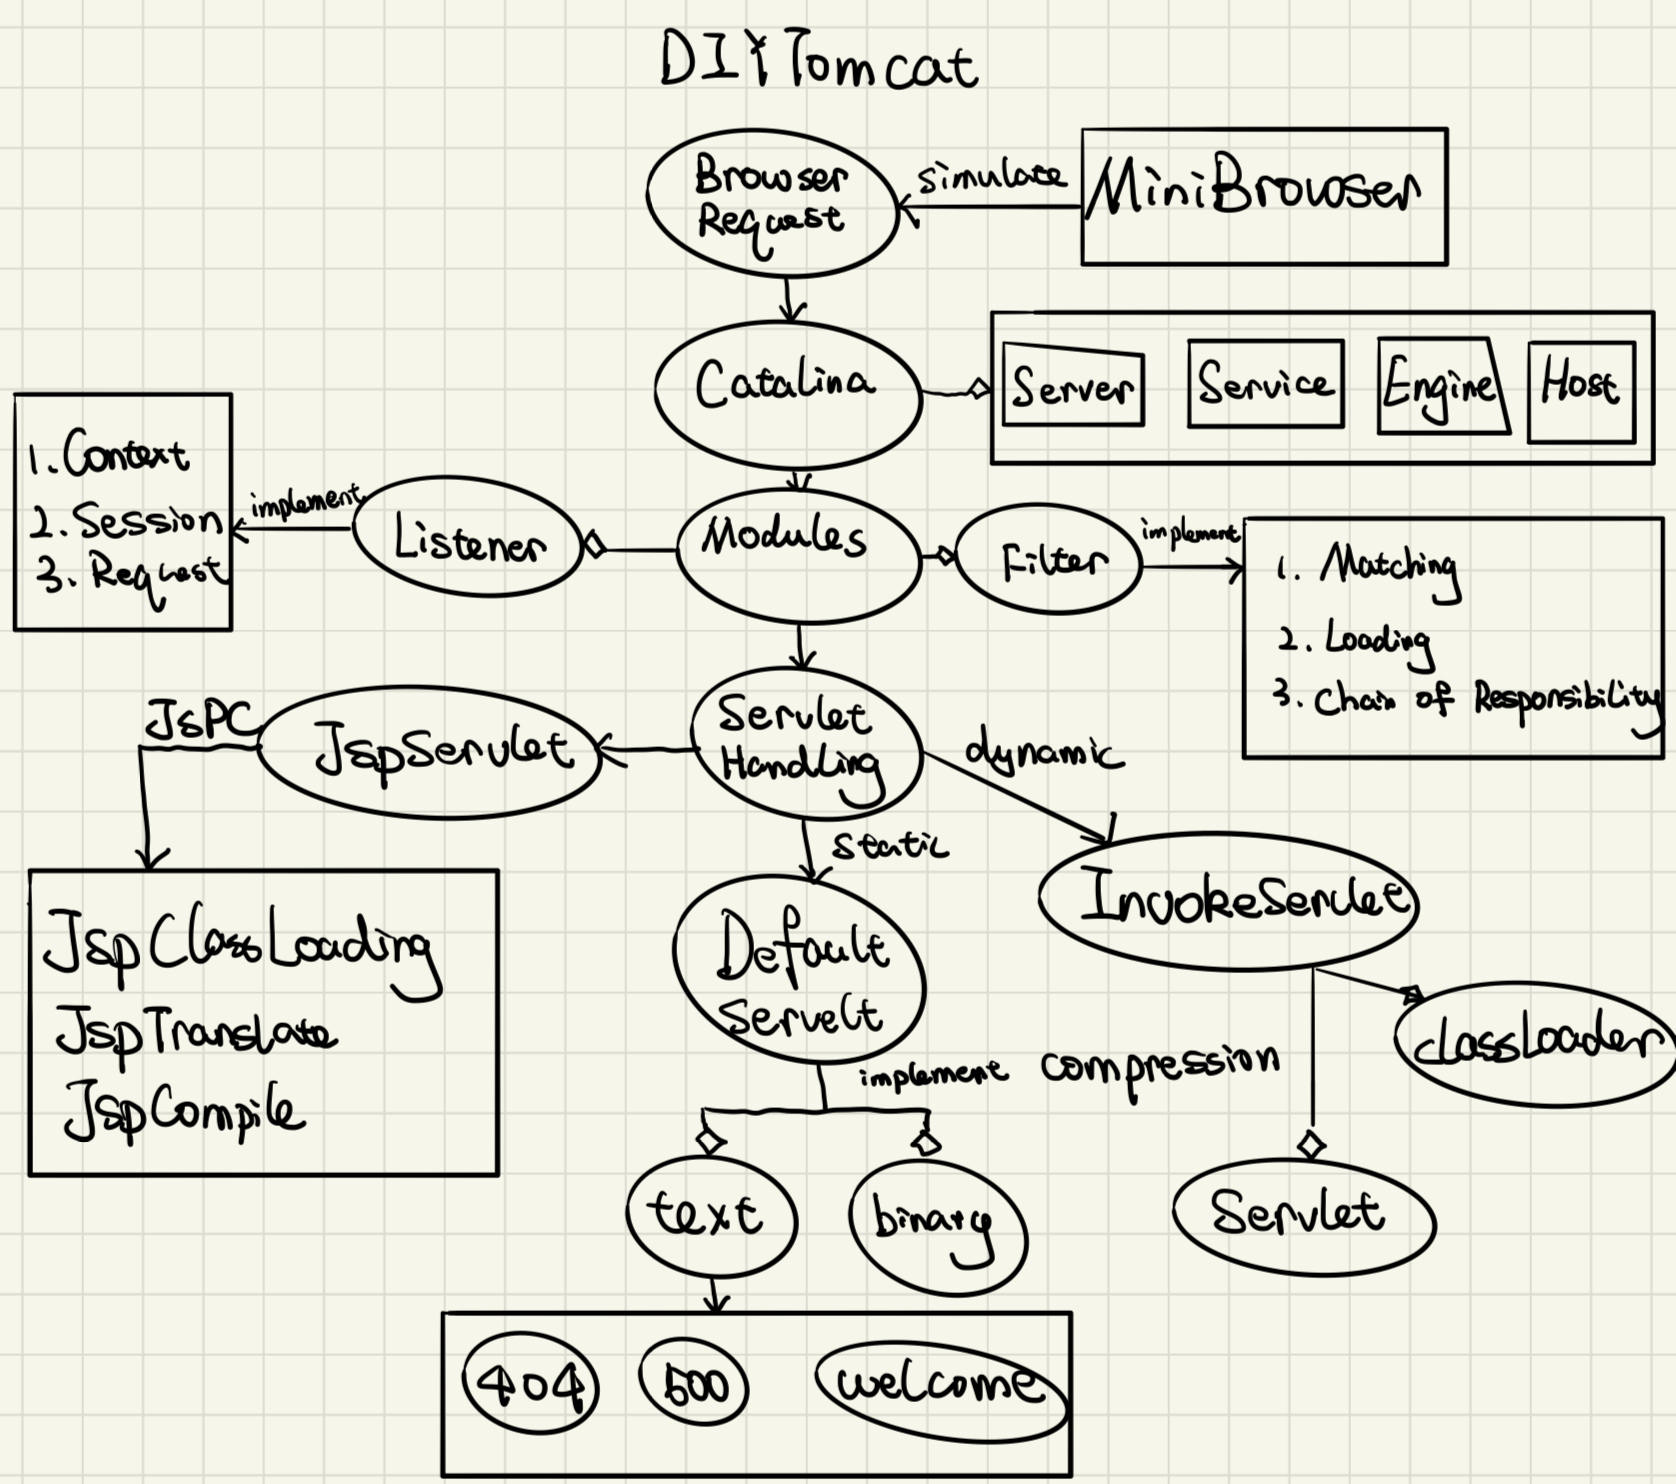 DIYTomcat
Browser
Request
simulate
MiniBrowser
Catalina
Server
Service
Engine
Host
1. Context
2. Session
3. Request
implement
Listener
Modules
Filter
implement
1. Matching
2. Loading
3. Chain of Responsibility
JsPC
JspServlet
Servlet
Handling
dynamic
static
InvokeServlet
JspClassLoading
JspTranslate
JspCompile
Default
Servelt
classLoader
implement compression
text
binary
Servlet
404
500
welcome